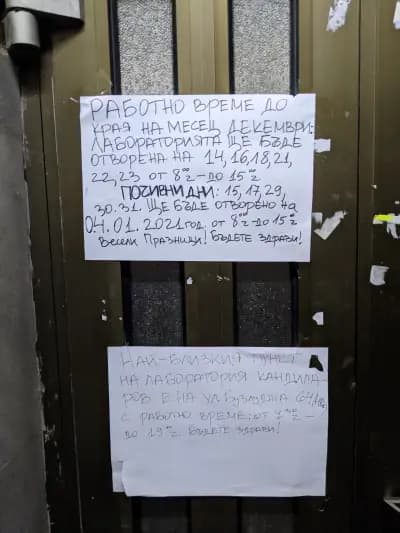 РАБОТНО ВРЕМЕ ДО
КРАЯ НА МЕСЕЦ ДЕКЕМВРИ:
ЛАБОРАТОРИЯТА ЩЕ БЪДЕ
ОТВОРЕНА НА 14,16,18,21,
22,23 ОТ 8⁰⁰ч – ДО 15⁰⁰ч
ПОЧИВНИ ДНИ: 15,17,29,
30.31. ЩЕ БЪДЕ ОТВОРЕНО НА
04.01.2021 год. от 8⁰⁰ч – до 15⁰⁰ч
Весели Празници! Бъдете здрави!
НАЙ-БЛИЗКИЯ ПУНКТ
НА ЛАБОРАТОРИЯ КАНДИЛА-
РОВ Е НА УЛ.
С РАБОТНО ВРЕМЕ: ОТ 7³⁰ч –
ДО 19⁰⁰ч БЪДЕТЕ ЗДРАВИ!